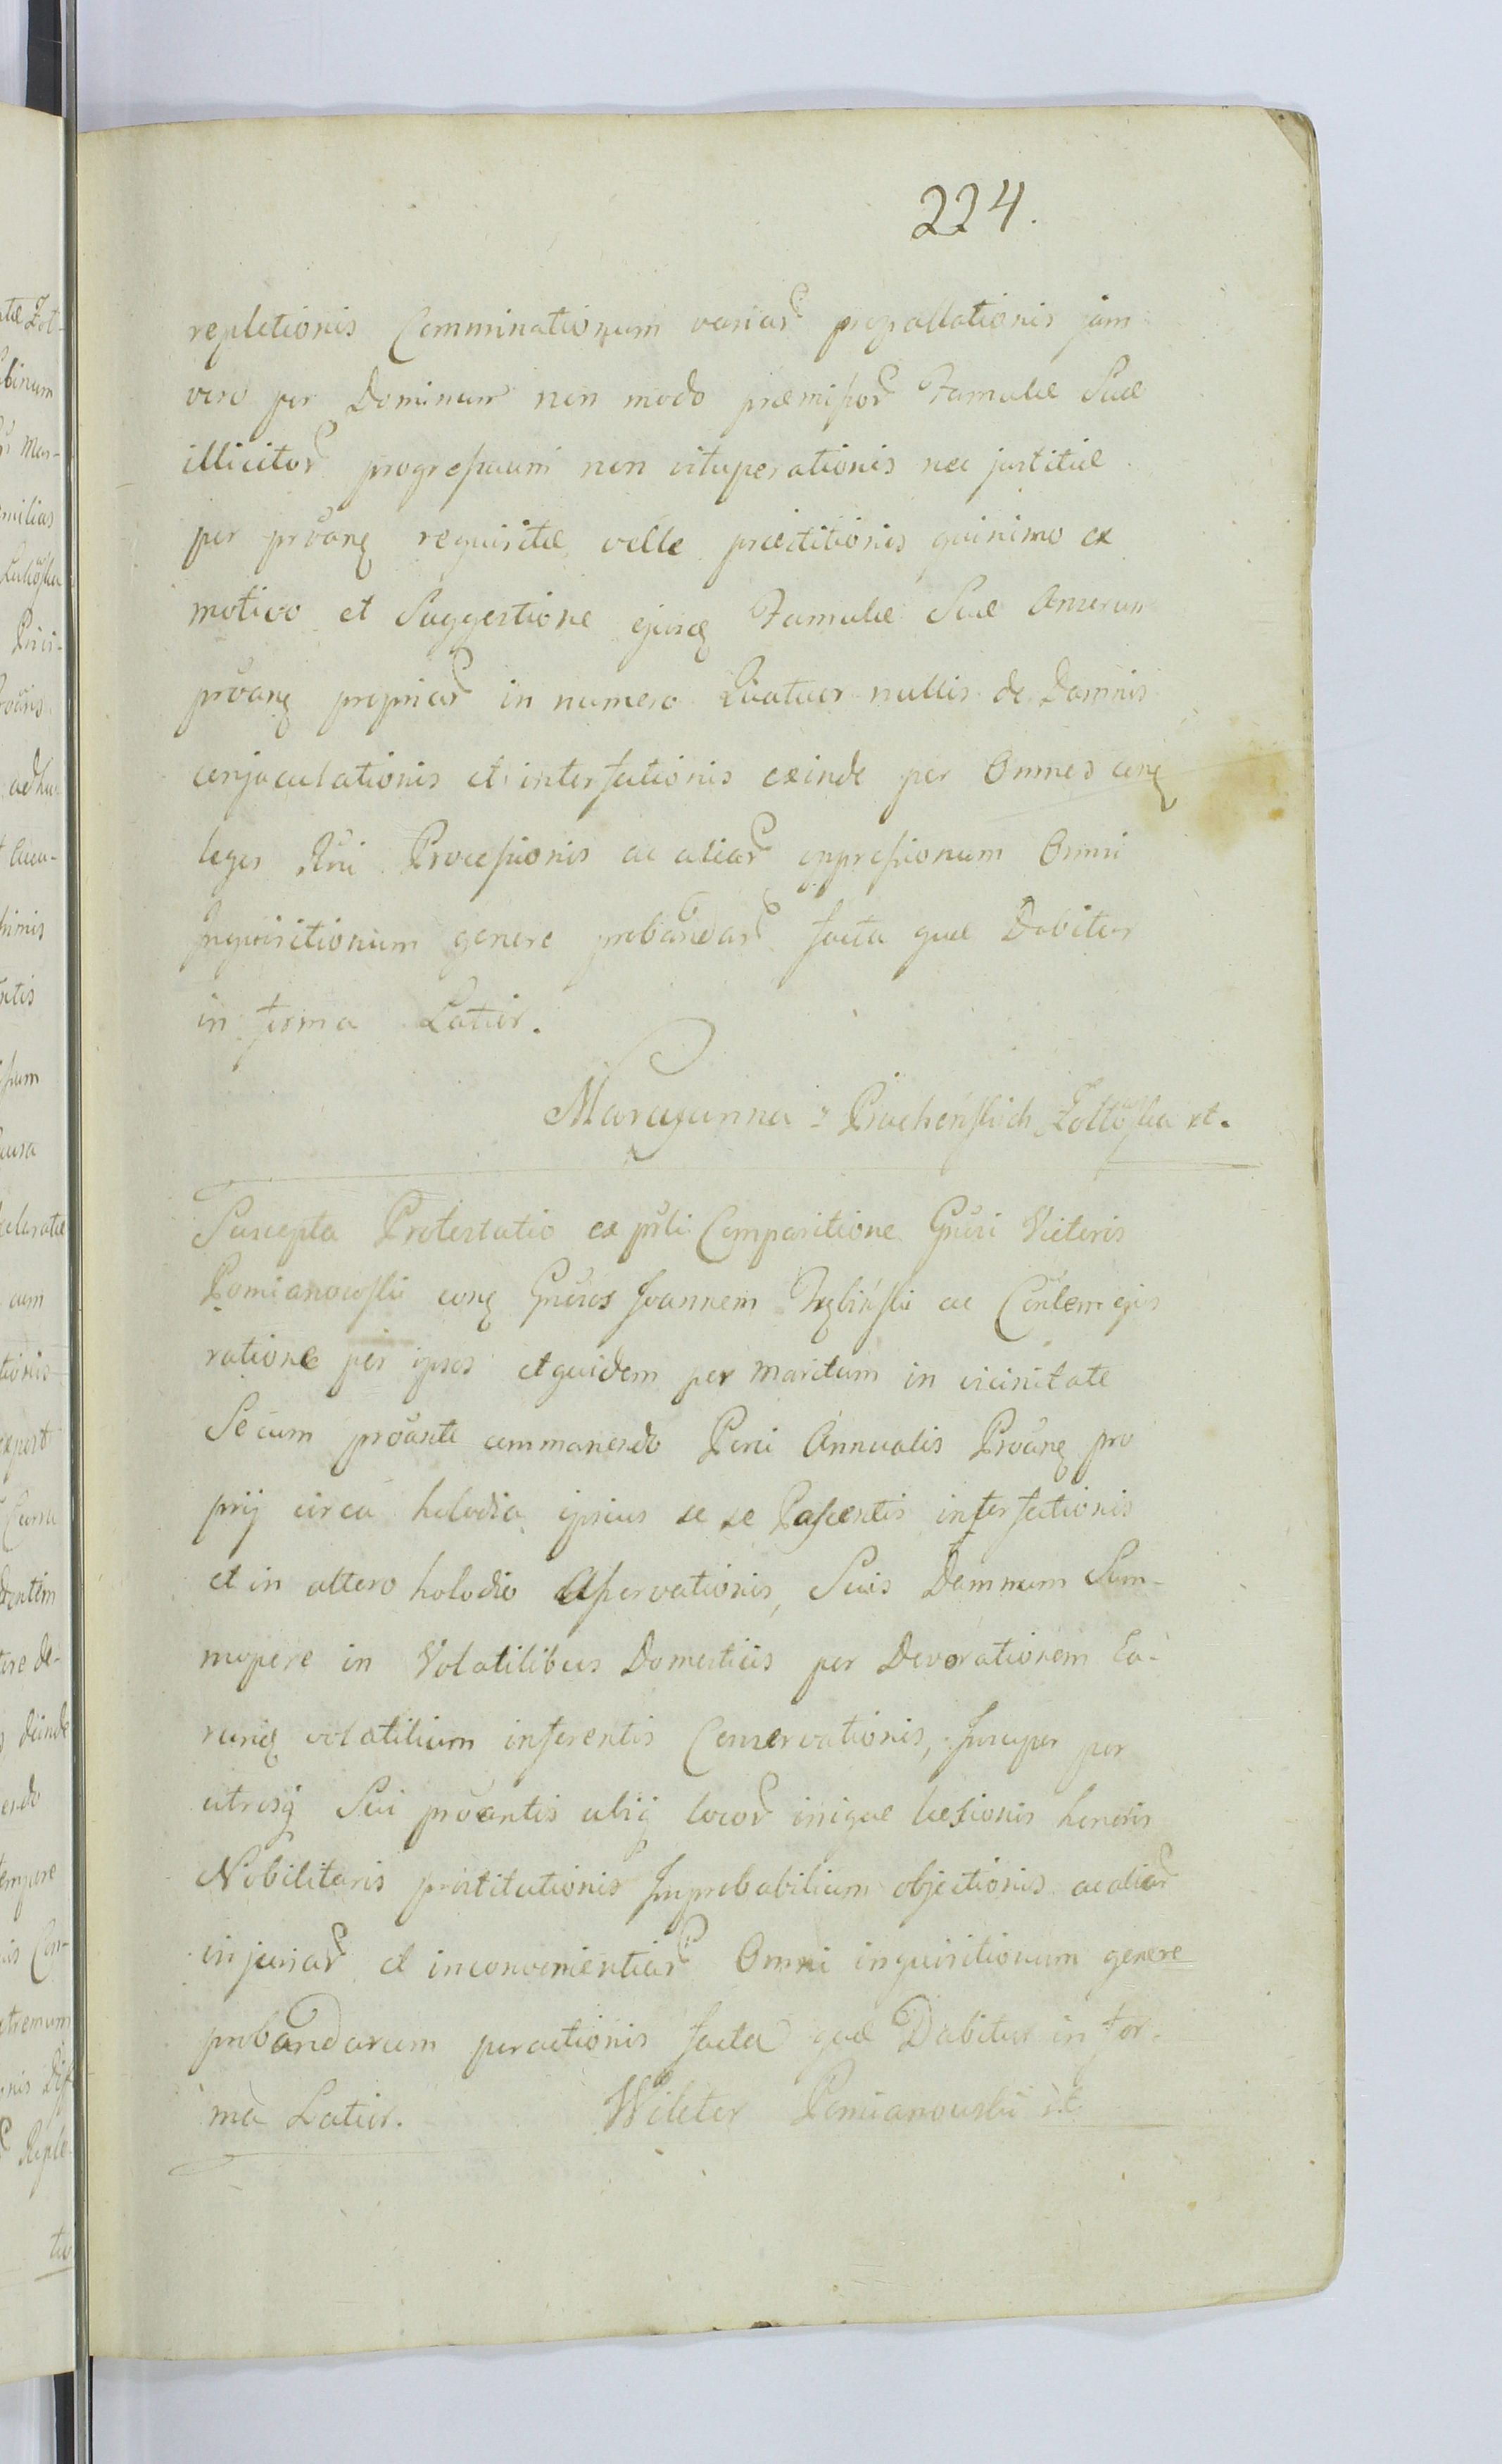 224.
repletionis Comminationum variar̃ prograssationis jam
vero per Dominum non modo præmissor̃ Famulæ Suæ
illicitor̃ progressuum non vituperationis nec justitiæ
per pr̃tanq requisitæ velle præstitionis quinimo ex
motivo et Suggestione ejusq Famulæ Suæ Anserum
pr̃tanq propriar̃ in numero Quatuor nullis de Damnis
conjaculationis et interfectionis exinde per Omnes cunq
leges Rñi Processionis ac aliar̃ oppressionum Omni
Inquisitionum genere probandar̃ facta quæ Dabitur
in forma Latior.
Maryanna z Prachenskich Zołtowska et.
Suscepta Protestatio ex pñti Comparitione Gñsi Victoris
Pomianowski conq Gñsos Joannem Trębinski ac Cõnlem ejus
ratione per ipsos et quidem per maritum in vicinitate
Secum pr̃tante commanendo Porci Annualis Pr̃tanq pro
prij circa holodia ipsius se se Pascentis interfectionis
et in altero holodio Asservationis, Suis Damnum Sum-
mopere in Volatilibus Domesticis per Devorationem Ea-
rumq volatilium inferentis Conservationis, Insuper per
utrosq Sui pr̃tantis ubiq locor̃ iniquæ læsionis honoris
Nobilitaris prostitutionis Improbabilium objectionis ac aliar̃
injuriar̃ et inconvenientiar̃ Omni inquisitionum genere
probandarum peractionis facta quæ Dabitur in for-
ma Latior. Wikter Pomianowski